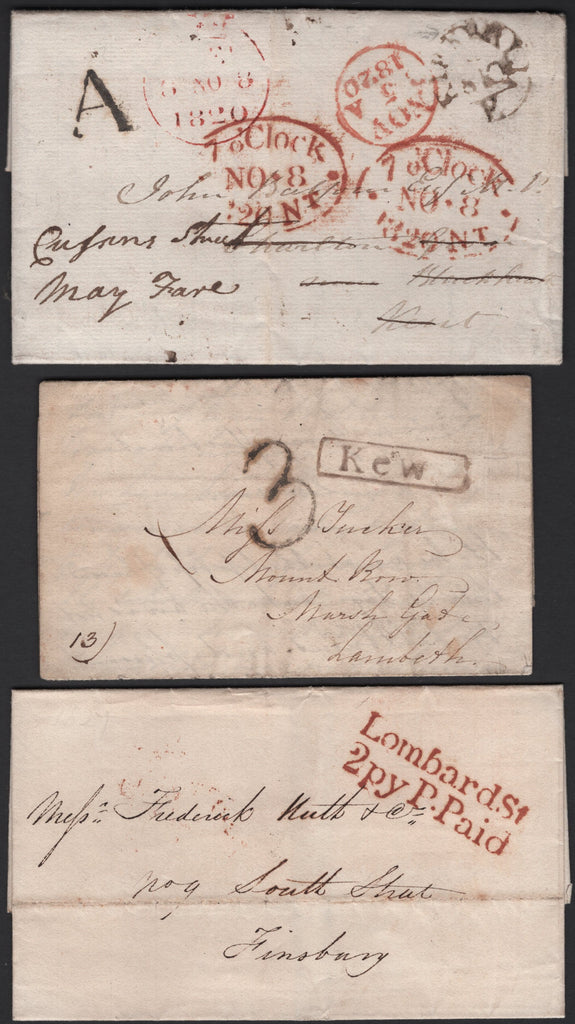 A
NO 8
1820
NOV
3
1820
A
7 o'Clock
NO. 8
NT
7 o'Clock
NO. 8
1820 NT
John
Esq M.P.
Charlton
Kent
Street
May Fare
3
Kew
Miss Tucker
Mount Row
Marsh Gate
Lambeth.
13)
Lombard St
2py P. Paid
Messrs Frederick Huth & Co
No 9 South Street
Finsbury